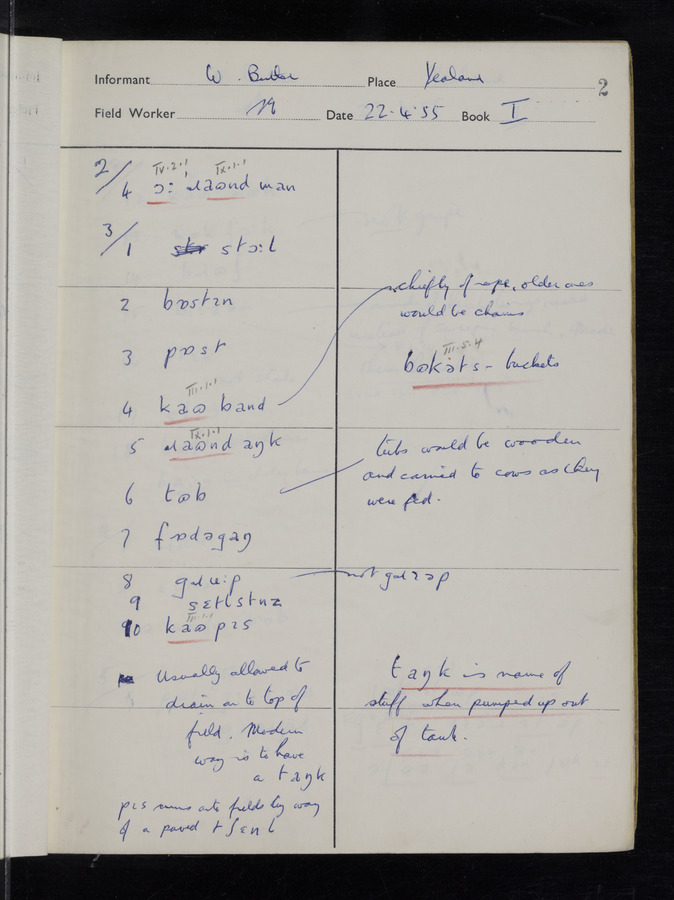 Informant W. Butler Place Yealand 2
Field Worker Date 22.4.55 Book I
IV.2.1 IX.1.1
2/4 ɔː ɹaʊnd man
3/1 stɔːl
2 bʊstɪn
chiefly of rope, older ones
would be chains
3 pɒst
III.5.4
bʊkəts - buckets
III.1.1
4 kaʊ band
IX.1.1
5 ɹaʊnd aŋk
tubs would be wooden
and carried to cows as they
were fed.
6 tʊb
7 fɒdəgaŋ
8 gɹuːp not gɹɪəp
9 sɛtlstnz
III.1.1
10 kaʊ pɪs
Usually allowed to
drain on to top of
field. Modern
way is to have
a taŋk
pɪs runs onto fields by way
of a paved tʃɛnl
taŋk is name of
stuff when pumped up out
of tank.